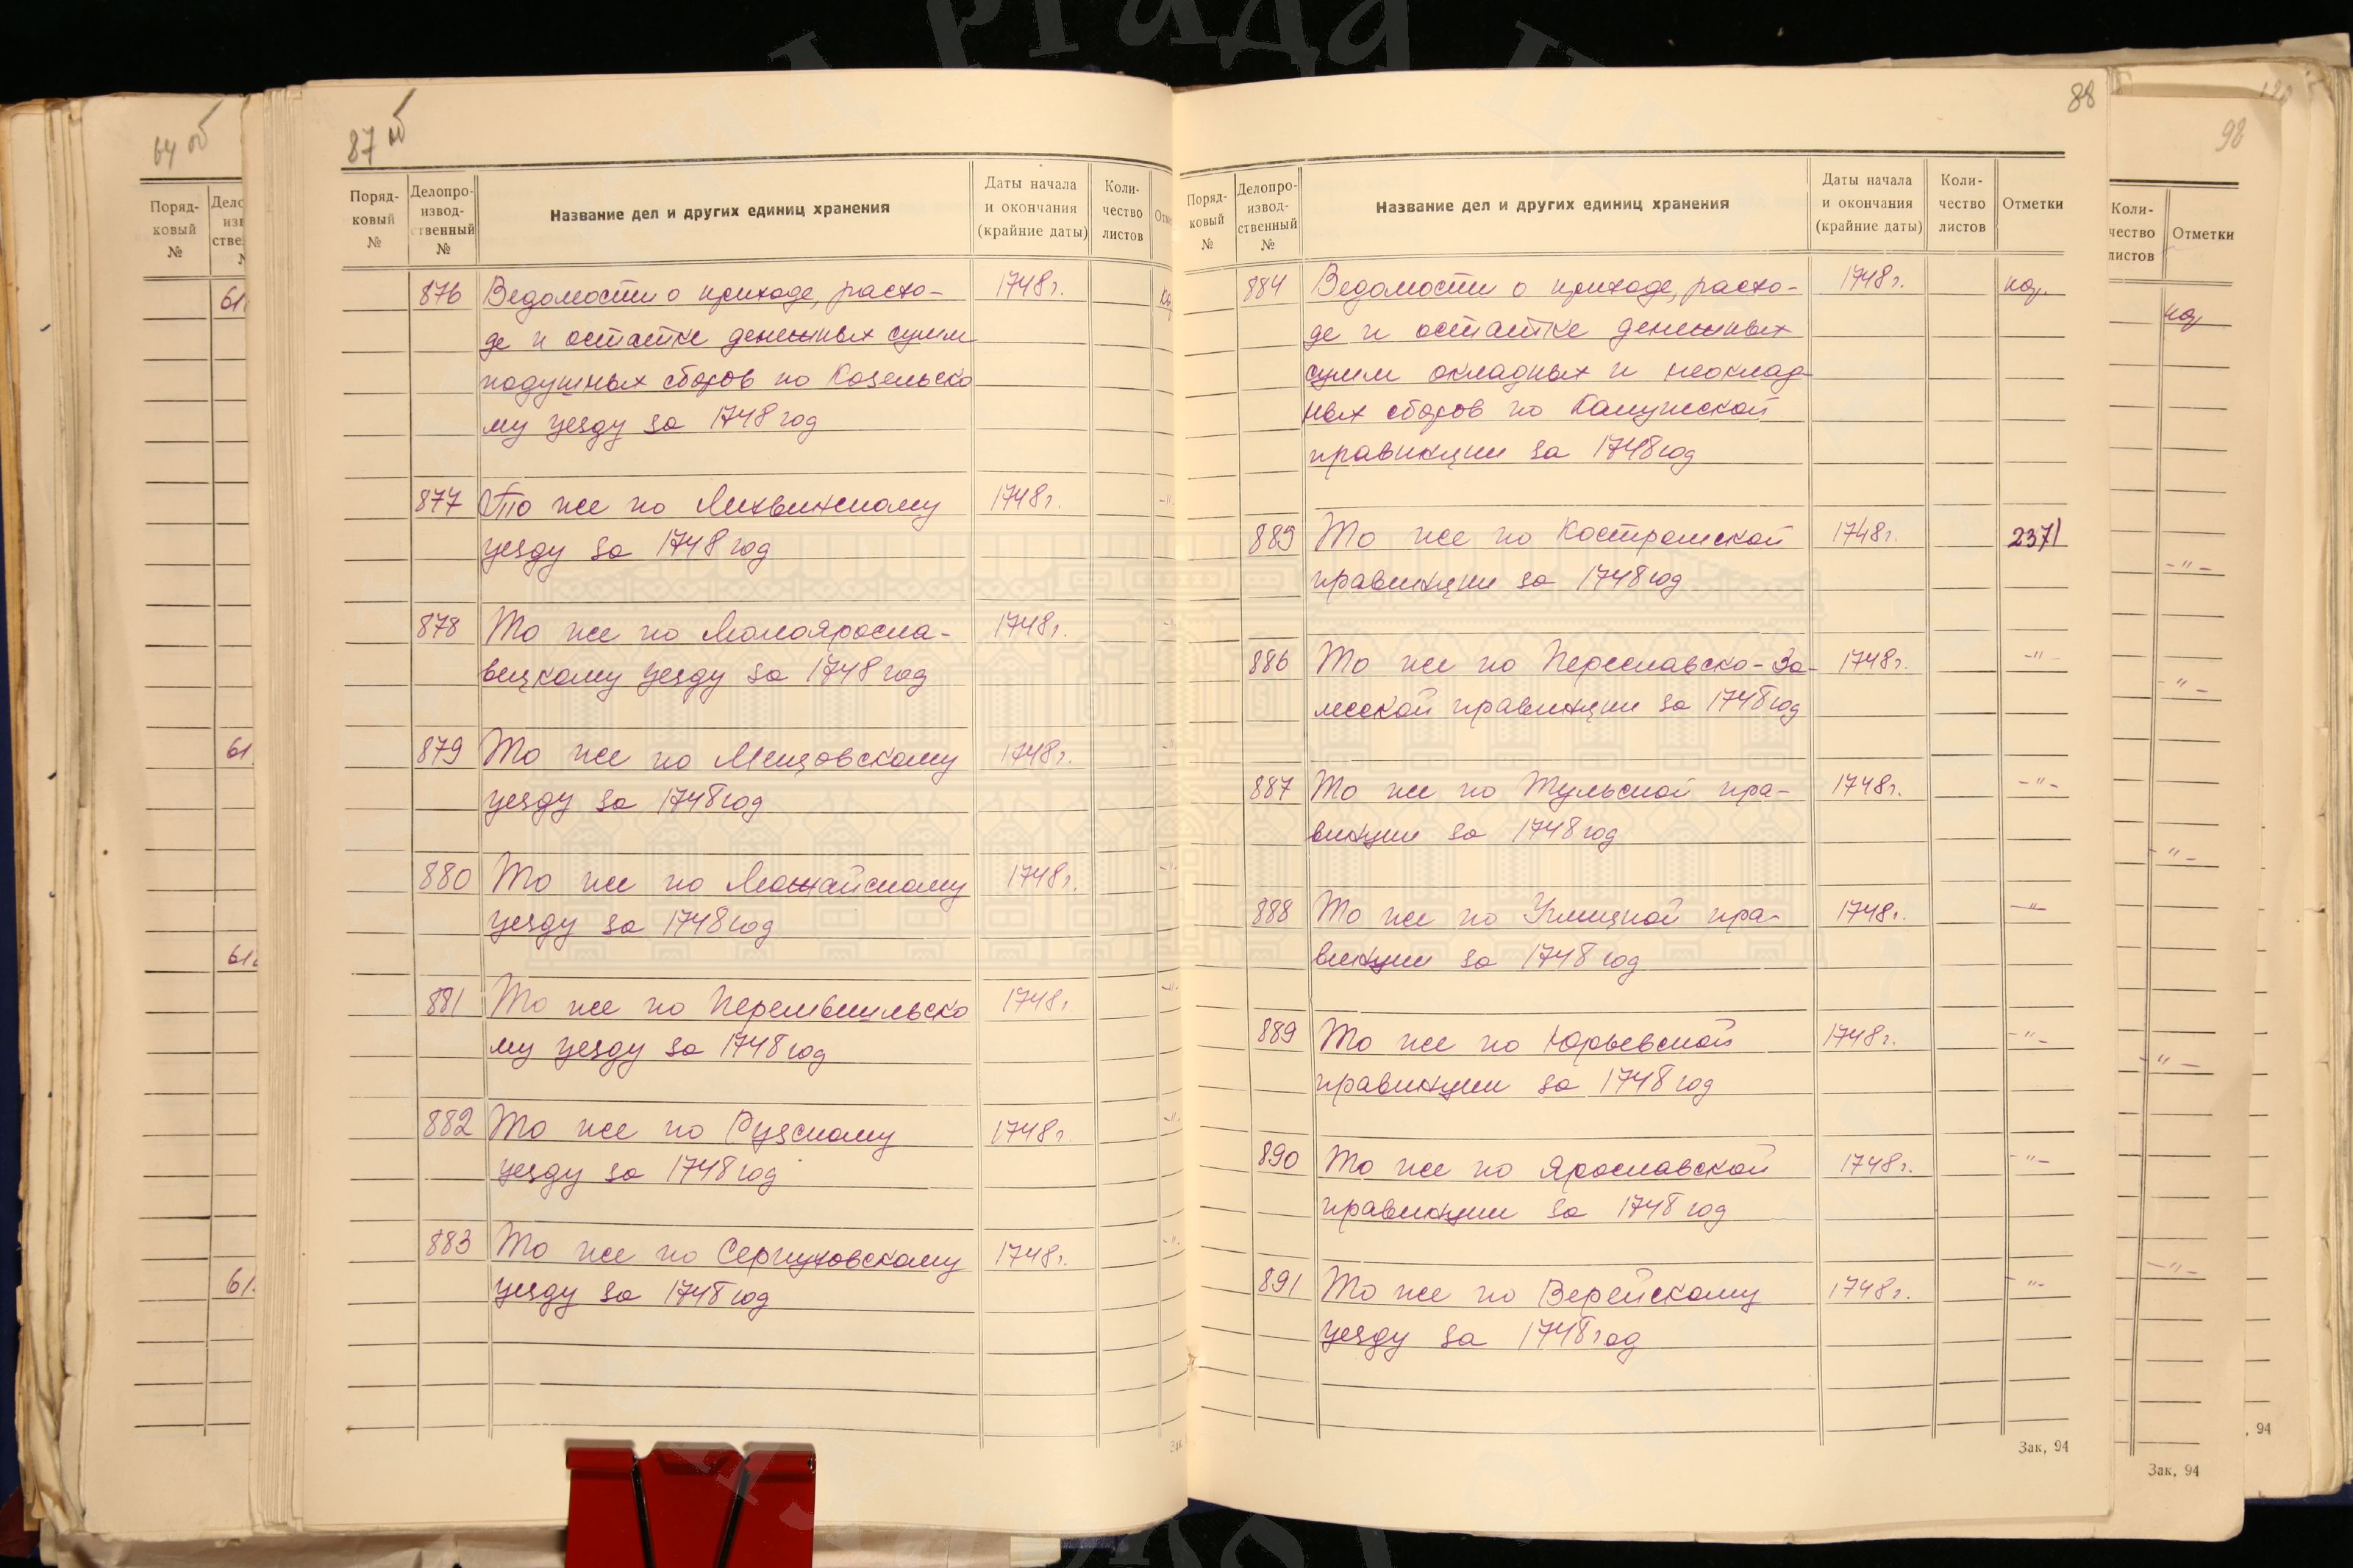 64 об
87 об
88
98
Поряд-
ковый
№
Поряд-
ковый
№
Делопро-
извод-
ственный
№
Название дел и других единиц хранения
Даты начала
и окончания
(крайние даты)
Коли-
чество
листов
876 Ведомости о приходе, расхо- 1748 г.
де и остатке денежных сумм
подушных сборов по Козельско
му уезду за 1748 год
877 То же по Лихвинскому 1748 г.
уезду за 1748 год
878 То же по Малояросла- 1748 г.
вецкому уезду за 1748 год
879 То же по Мещовскому 1748 г.
уезду за 1748 год
880 То же по Можайскому 1748 г.
уезду за 1748 год
881 То же по Перемышльско 1748 г.
му уезду за 1748 год
882 То же по Рузскому 1748 г.
уезду за 1748 год
883 То же по Серпуховскому 1748 г.
уезду за 1748 год
Поряд-
ковый
№
Делопро-
извод-
ственный
№
Название дел и других единиц хранения
Даты начала
и окончания
(крайние даты)
Коли-
чество
листов
Отметки
884 Ведомости о приходе, расхо- 1748 г.
де и остатке денежных
сумм окладных и неоклад
ных сборов по Калужской
правинции за 1748 год
885 То же по Костромской 1748 г. 2371
правинции за 1748 год
886 То же по Переславско-За- 1748 г. -"-
лесской правинции за 1748 год
887 То же по Тульской пра- 1748 г. -"-
винции за 1748 год
888 То же по Углицкой пра- 1748 г. -"-
винции за 1748 год
889 То же по Юрьевской 1748 г. -"-
правинции за 1748 год
890 То же по Ярославской 1748 г. -"-
правинции за 1748 год
891 То же по Верейскому 1748 г. -"-
уезду за 1748 год
Зак. 94
Коли-
чество
листов
Отметки
-"-
-"-
-"-
-"-
-"-
Зак. 94
94